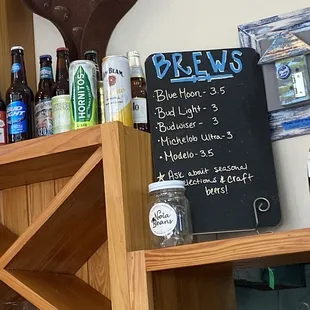 BREWS
Blue Moon - 3.5
Bud Light - 3
Budwiser - 3
Michelob Ultra - 3
Modelo - 3.5
Ask about seasonal
& craft
beers!
HORNITOS
Beans